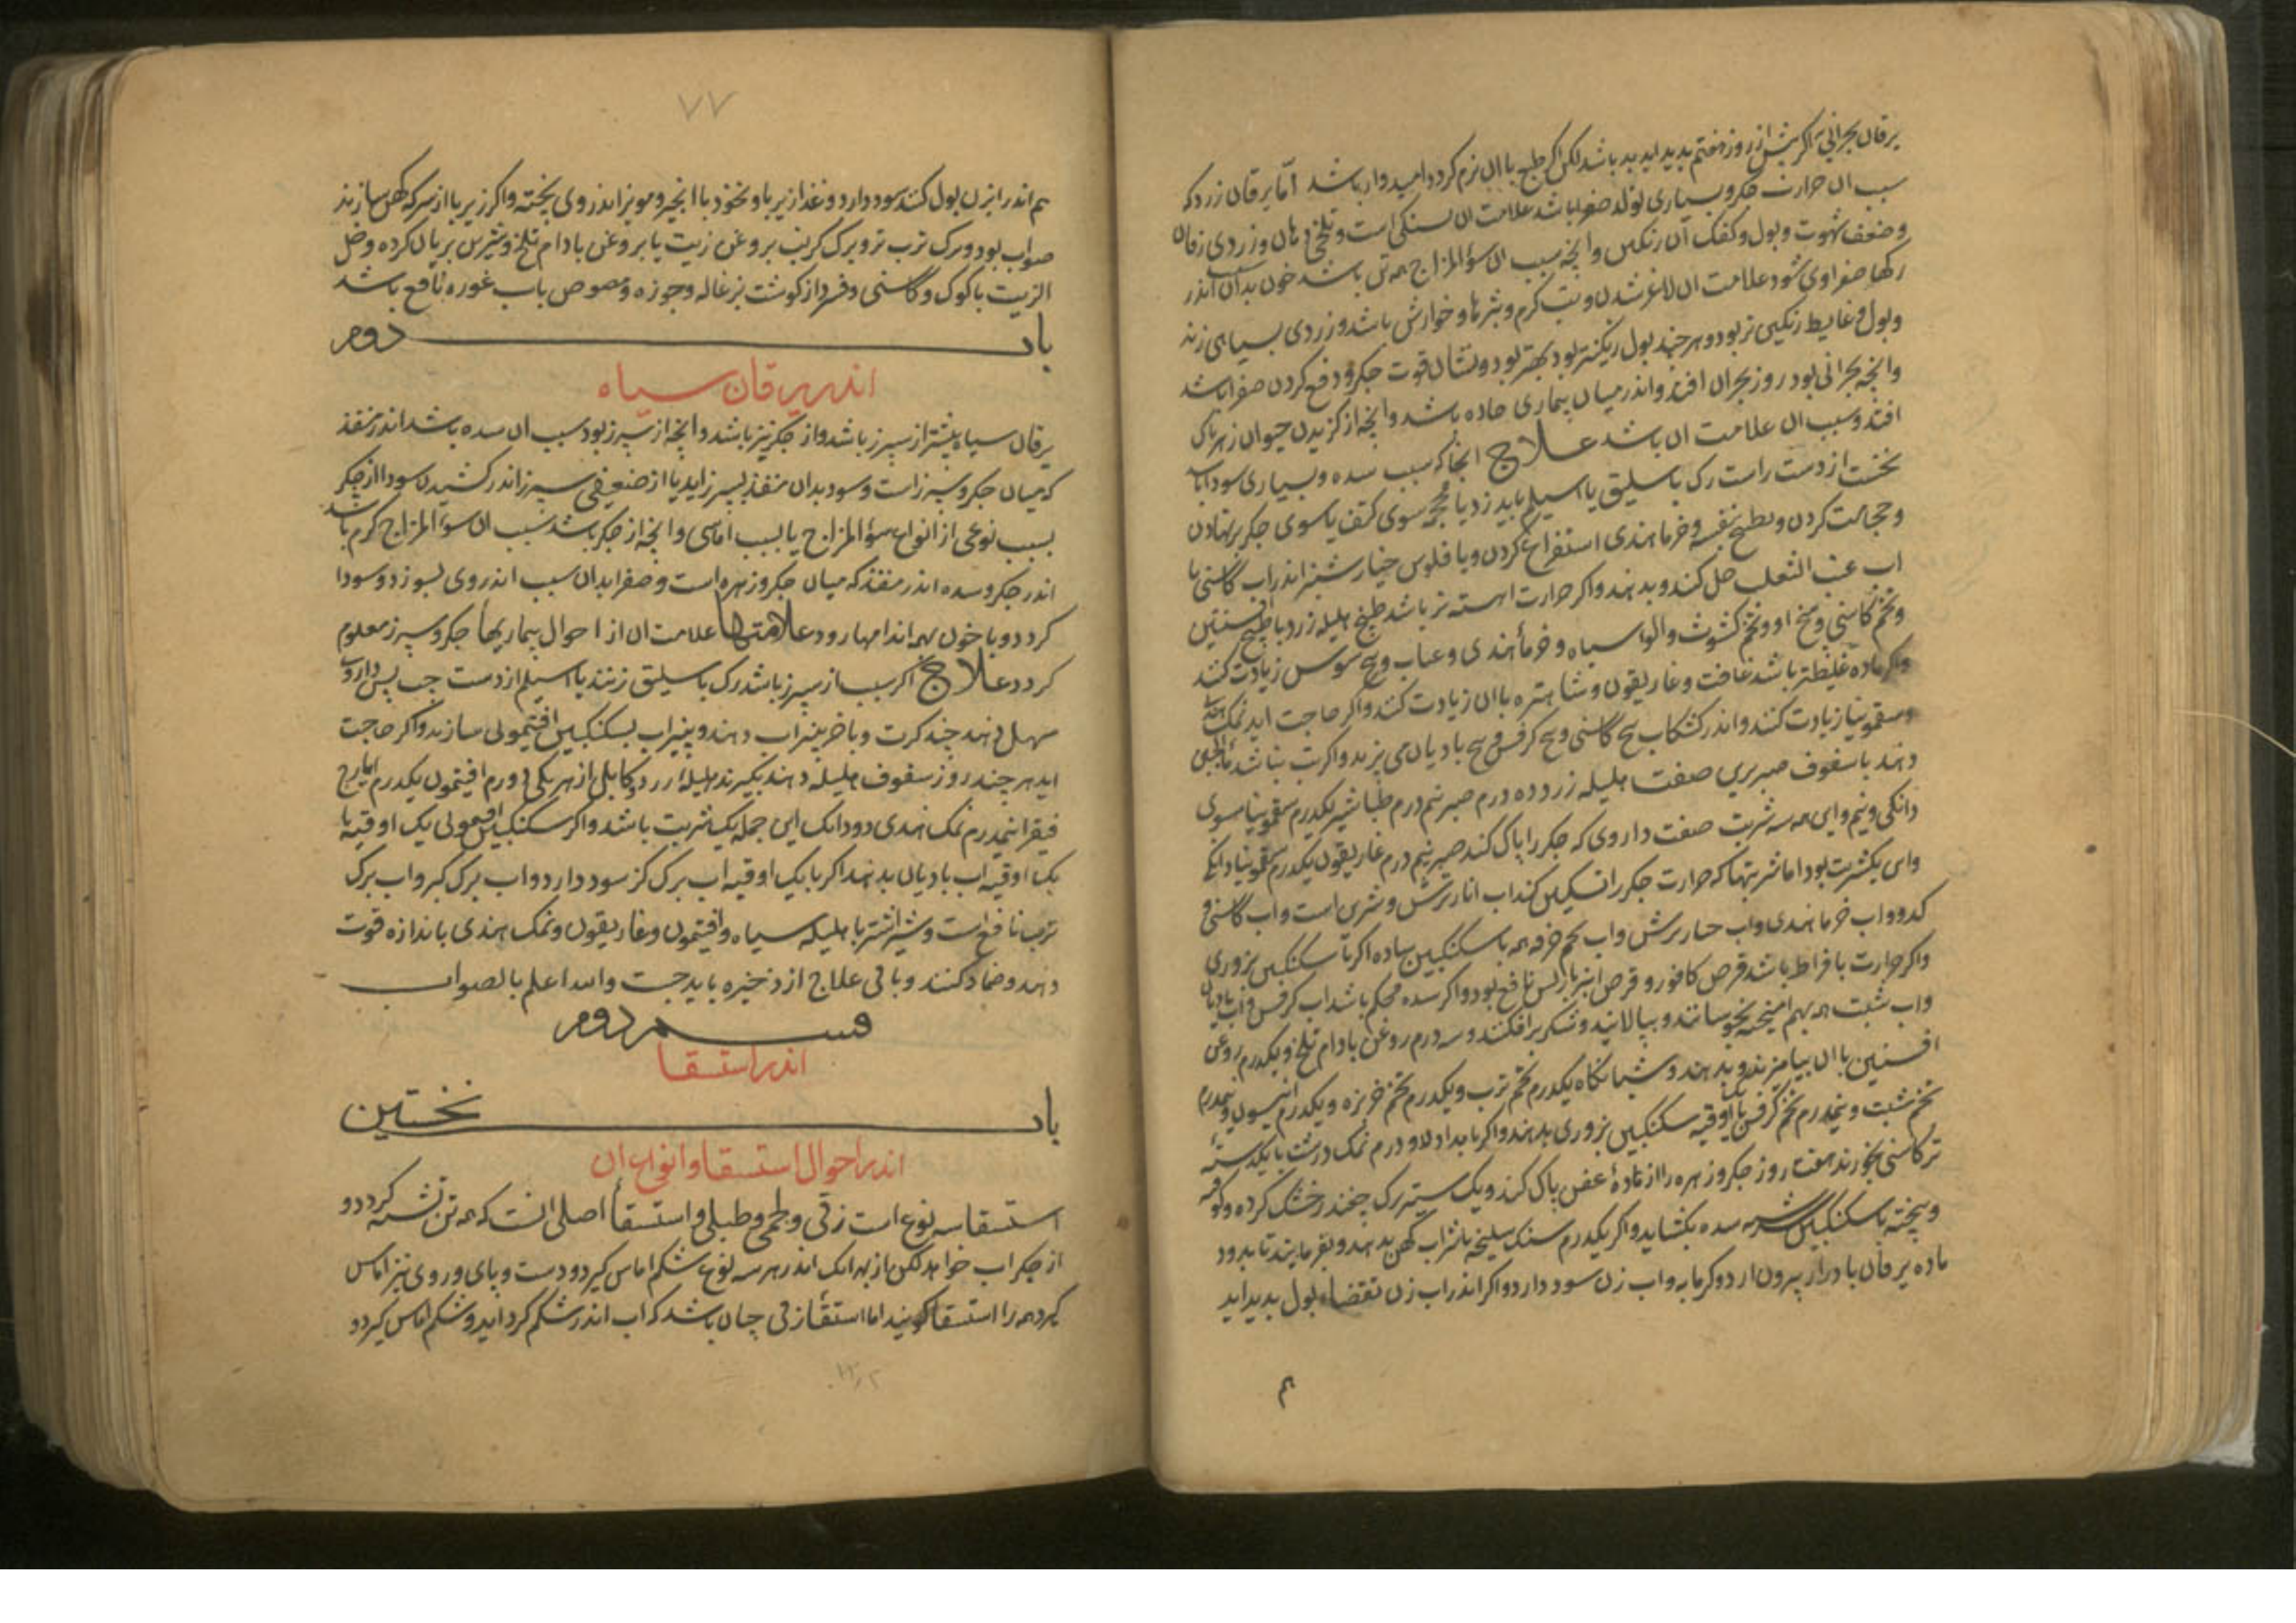 یرقان بحرانی اکر پیش از روز هفتم بدید اید بد باشد لکن اکر طبع با ان نرم کردد امیدوار باشد اما یرقان زرد که
سبب ان حرارت جکر و بسیاری تولد صفرا باشد علامت ان تشنکی است و تلخی دهان و زردی زفان
و ضعف شهوت و بول و کفک آن رنکین وانچه سبب ان سوٴ المزاج همه تن باشد خون بدان سبب اندر
رکها صفراوی شود علامت ان لاغر شدن و تب کرم و بثرها و خوارش باشد و زردی بسیاهی زند
و بول و غایط رنکین تر بود و هر چند بول رنکین تر بود بهتر بود و نشان قوت جکر و دفع کردن صفرا باشد
وانچه بحرانی بود روز بحران افتد و اندر میان بیماری حاده باشد وانچه از کزیدن حیوان زهرناک
افتد و سبب ان علامت ان باشد علاج انجا که سبب سده و بسیاری سودا باشد
نخست از دست راست رک باسلیق یا اسیلم باید زد یا محجمه سوی کتف یا سوی جکر برنهادن
و حجامت کردن و بطبیخ بنفشه و خرما هندی استفراغ کردن و یا فلوس خیارشنبر اندر اب کاسنی یا
اب عنب الثعلب حل کنند و بدهند واکر حرارت اهسته تر باشد طبیخ هلیله زرد با طبیخ افسنتین
و تخم کاسنی و بیخ او و تخم کشوث والو سیاه و خرما هندی و عناب و بیخ سوس زیادت کنند
واکر ماده غلیظتر باشد غافت و غاریقون و شاهتره با ان زیادت کنند واکر حاجت اید نمک هندی
و سقمونیا زیادت کنند و اندر کشکاب بیخ کاسنی و بیخ کرفس و بیخ بادیان می پزند واکر تب نباشد ماالجبن
دهند با سفوف صبر برین صفت هلیله زرد ده درم صبر نیم درم طباشیر یکدرم سقمونیا مشوی
دانکی و نیم و این همه سه شربت صفت داروی که جکر را پاک کند صبر نیم درم غاریقون یکدرم سقمونیا دانکی
و این یکشربت بود اما شربتها که حرارت جکر را تسکین کند اب انار ترش و شیرین است و اب کاسنی و
کدو و اب خرما هندی و اب خیار ترش و اب تخم خرفه همه با سکنکبین ساده اکر با سکنکبین بزوری
واکر حرارت بافراط باشد قرص کافور و قرص انبرباریس نافع بود واکر سده محکم باشد اب کرفس و اب بادیان
و اب شبت همه بهم امیخته بجوشانند و بپالایند و شکر برافکنند و سه درم روغن بادام تلخ و یکدرم روغن
افسنتین با ان بیامیزند و بدهند و شبانکاه یکدرم تخم ترب و یکدرم تخم خربزه و یکدرم انیسون و نیمدرم
تخم شبت و نیمدرم تخم کرفس با یک اوقیه سکنکبین بزوری بدهند واکر بامداد دو درم نمک درشت با یکدسته
تر کاسنی بخورند هفت روز جکر و زهره را از ماده عفن پاک کند و یک ستیر برک چغندر خشک کرده و کوفته
و بیخته با سکنکبین سرشته سده بکشاید واکر یکدرم سنک سلیخه با شراب کهن بدهند و بفرمایند تا بدود
ماده یرقان بادرار بیرون ارد و کرمابه و اب زن سود دارد واکر اندر اب زن تقضاء بول بدید اید
هم
٧٧
هم اندر ابزن بول کند سود دارد و غذا زیربا و نخود با انجیر و مویز اندر وی پخته واکر زیربا از سرکه کهن سازند
صواب بود و برک ترب تر و برک کرنب بروغن زیت یا بروغن بادام تلخ و شیرین بریان کرده و خل
الزیت با کوک و کاسنی و قریز از کوشت بزغاله و جوزه و مصوص باب غوره نافع باشد
باب دوم
اندر یرقان سیاه
یرقان سیاه بیشتر از سپرز باشد و از جکر نیز باشد وانچه از سپرز بود سبب ان سده باشد اندر منفذ
که میان جکر و سپرز است و سودا بدان منفذ بسپرز اید یا از ضعیفی سپرز اندر کشیدن سودا از جکر
بسبب نوعی از انواع سوٴ المزاج یا بسبب اماسی وانچه از جکر باشد سبب ان سوٴ المزاج کرم باشد
اندر جکر و سده اندر منفذ که میان جکر و زهره است و صفرا بدان سبب اندر وی بسوزد و سودا
کردد و با خون بهمه اندامها رود علامتها علامت ان از احوال بیماریها جکر و سپرز معلوم
کردد علاج اکر سبب از سپرز باشد رک باسلیق زنند یا اسیلم از دست چپ پس داروی
مسهل دهند چند کرت و با خر پنیراب دهند و پنیراب بسکنکبین افتیمونی سازند واکر حاجت
اید هر چند روز سفوف هلیله دهند بکیرند هلیله زرد و کابلی از هر یکی دو درم افتیمون یکدرم ایارج
فیقرا نیمدرم نمک هندی دو دانک این جمله یک شربت باشد واکر سکنکبین افتیمونی یک اوقیه با
یک اوقیه اب بادیان بدهند اکر با یک اوقیه اب برک کز سود دارد و اب برک کبر و اب برک
ترب نافع است و شیر اشتر با هلیله سیاه و افتیمون و غاریقون و نمک هندی باندازه قوت
دهند و ضماد کنند و باقی علاج از ذخیره باید جست والله اعلم بالصواب
قسم دوم
اندر استسقا
باب نخستین
اندر احوال استسقا و انواع ان
استسقا سه نوع است زقی و لحمی و طبلی و استسقا اصلی انست که همه تن تشنه کردد و
از جکر اب خواهد لکن از بهر انک اندر هر سه نوع شکم اماس کیرد و دست و پای و روی نیز اماس
کیرد همه را استسقا کویند اما استسقا زقی چنان باشد که اب اندر شکم کرد اید و شکم اماس کیرد و